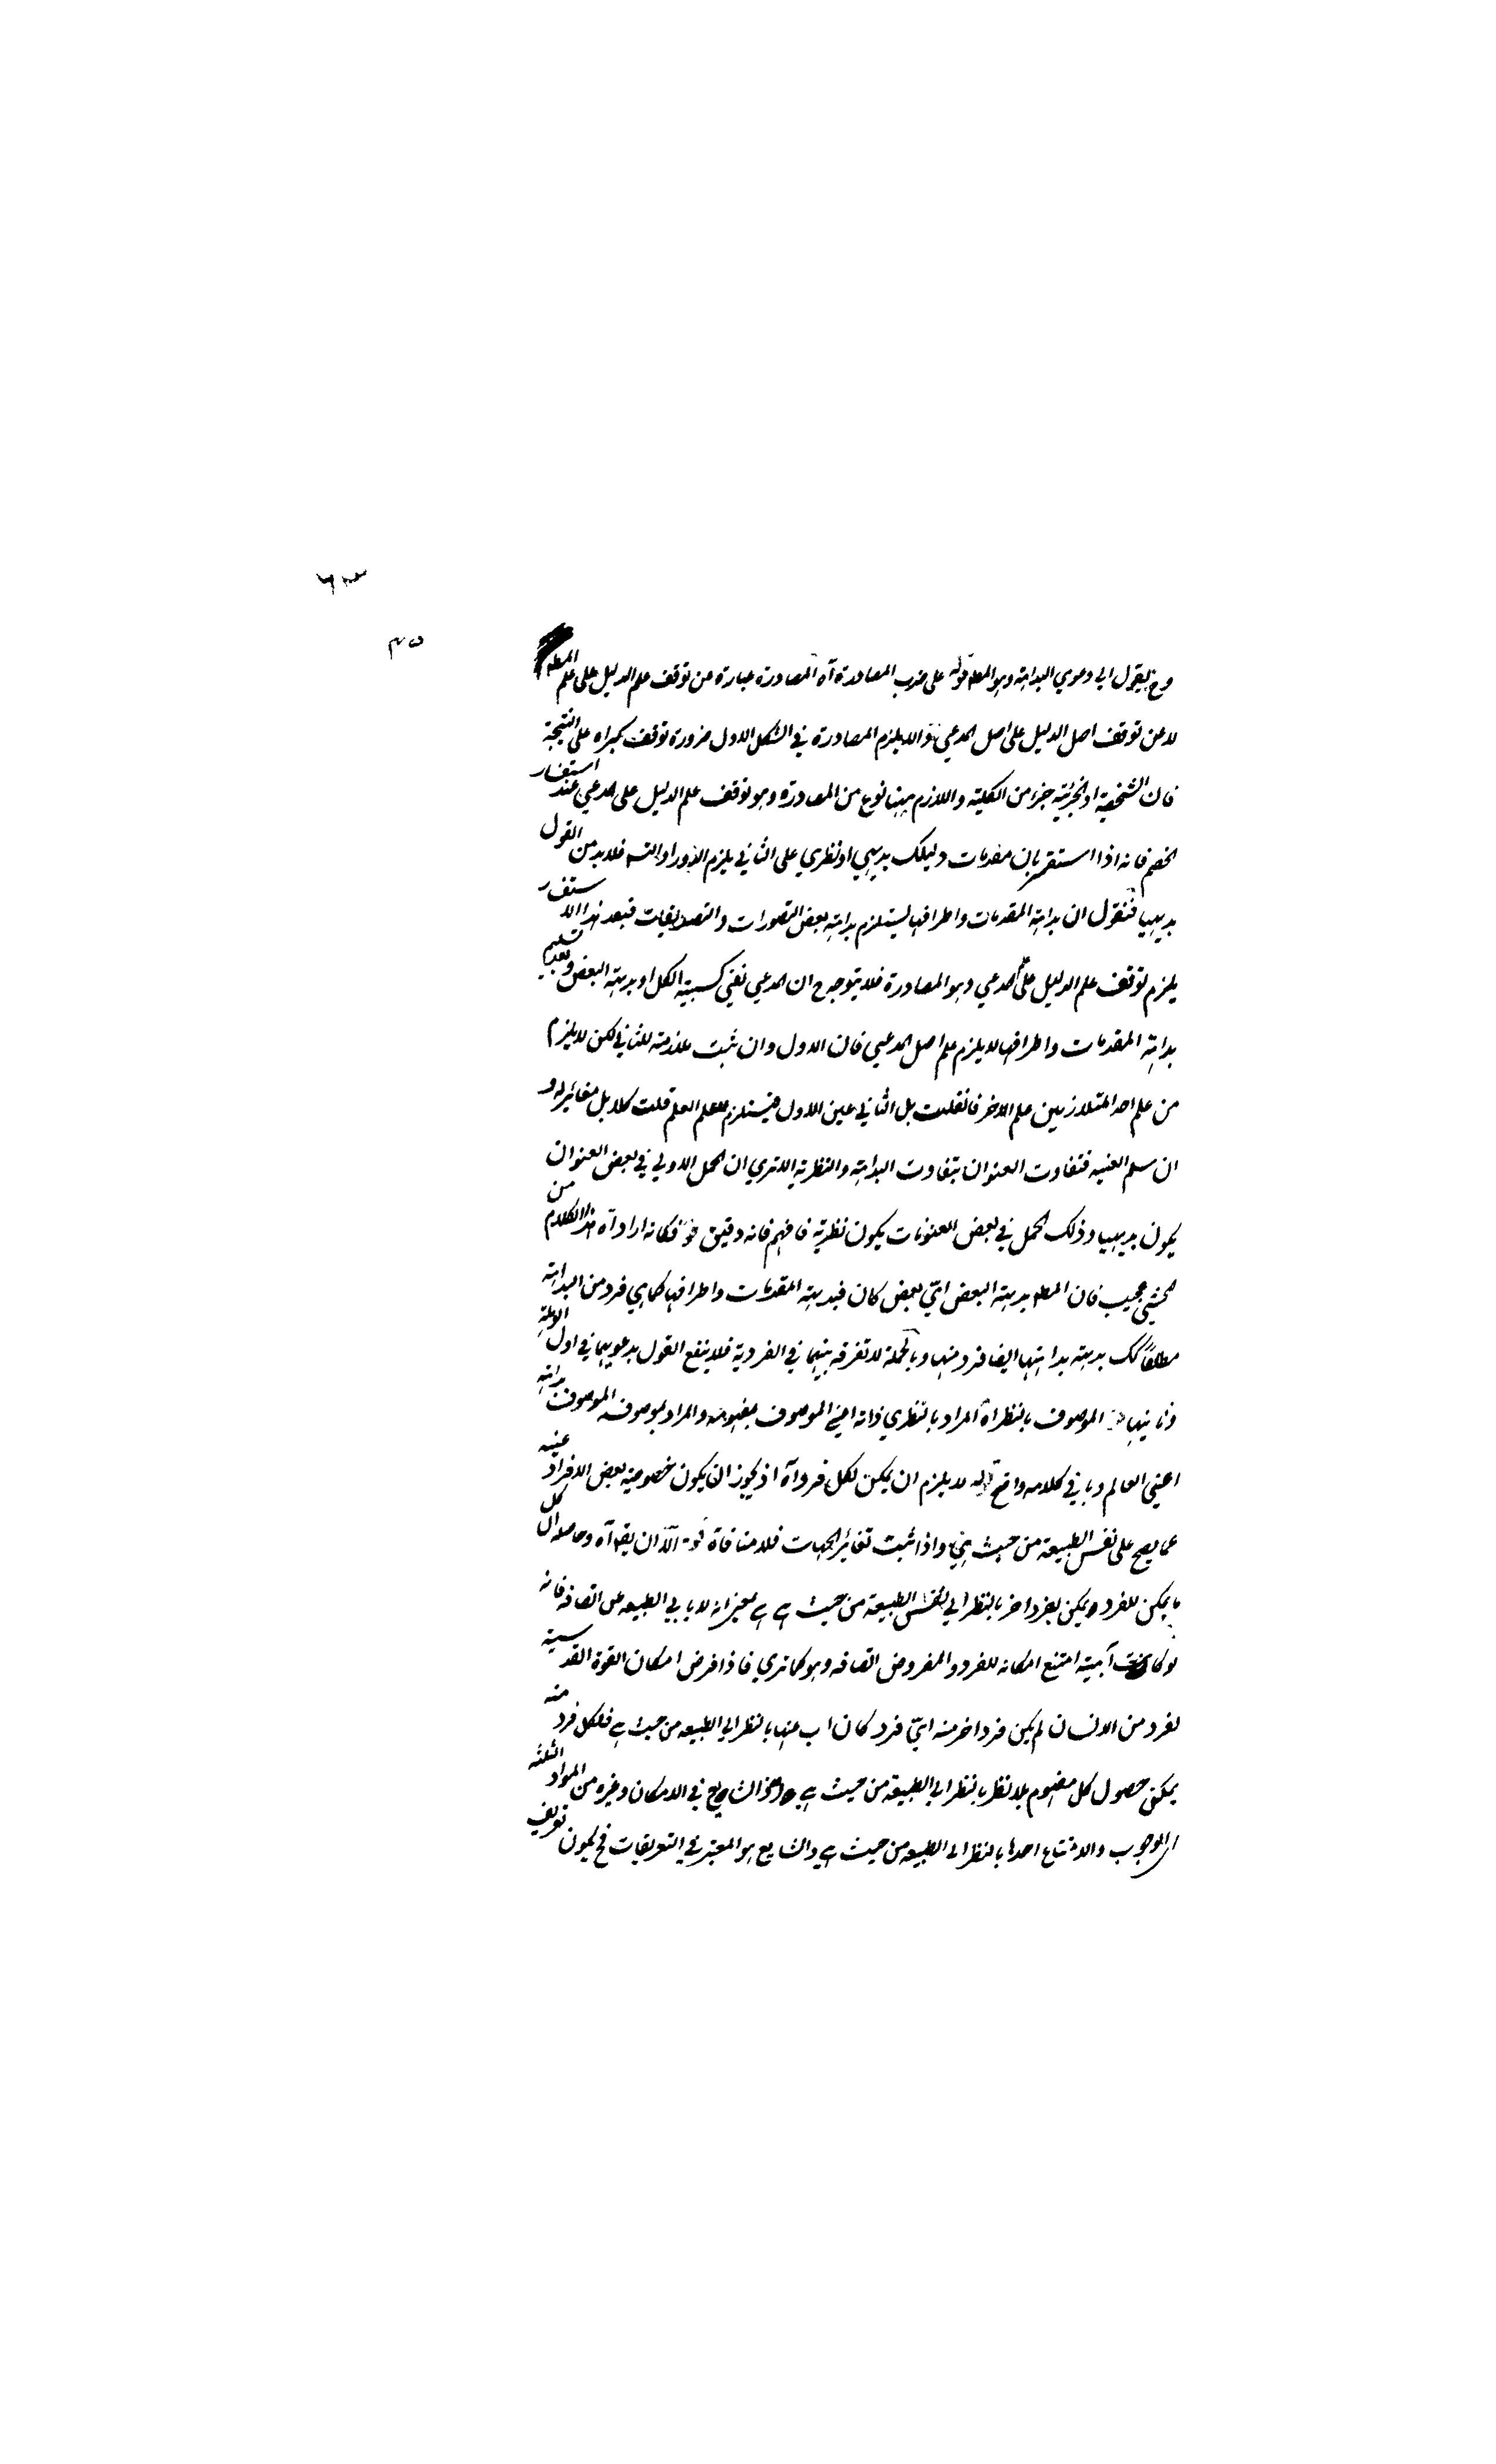 لا عن توقف اصل الدليل على اصل المدعي والا يلزم المصادرة في الشكل الاول ضرورة توقف كبراه على النتيجة
فان الشخصية او الجزئية جزء من الكلية واللازم ههنا نوع من المصادرة وهو توقف علم الدليل على المدعي عند استفسار
الخصم فانه اذا استفسر بان مقدمات دليلك بديهي او نظري على الثاني يلزم الدور او التسـ فلابد من القول
بديهيا فنقول ان بداهة المقدمات واطرافها يستلزم بداهة بعض التصورات والتصديقات فبعد هذا الاستفسار
يلزم توقف علم الدليل على المدعي وهو المصادرة فلا يتوجه ح ان المدعي نفي كسبية الكل او بديهية البعض وبعد تسليم
بداهة المقدمات واطرافها لا يلزم علم اصل المدعي فان الاول وان ثبت ملازمته للثاني لكن لا يلزم
من علم احد المتلازمين علم الاخر فانقلت بل الثاني عين الاول فيستلزم العلم العلم قلت كلا بل مغائر له و
ان سلم العنيه فتفاوت العنوان بتفاوت البداهة والنظرية الا تري ان الحمل الاولي في بعض العنوان
يكون بديهيا وذلك الحمل في بعض العنونات يكون نظرية فافهم فانه دقيق قوله فكانه اراد آه هذا الكلام من
المحشي عجيب فان المطـ بديهية البعض اي بعض كان فبديهية المقدمات واطرافها كما هي فرد من البداهة
مطلقا كك بديهية بداهتها ايضا فرد منها وبالجملة لا تفرقه بينهما في الفردية فلا ينفع القول بدعويهما في اول الامر
وثانيها قوله الموصوف بالنظر آه المراد بالنظري ذاته اعني الموصوف بمفهومه والمراد بموصوفه الموصوف بذاته
اعني العالم وباقي كلامه واضح قوله لا يلزم ان يمكن لكل فرد آه اذ يجوز ان يكون خصوصية بعض الافراد عنه
عما يصح على نفس الطبيعة من حيث هي واذا ثبت تغائر الجهات فلا منافاة قوله الا ان يقـ آه وحاصله ان كل
ما يمكن للفرد ويمكن لفرد اخر بالنظر الي نفس الطبيعة من حيث هي هي بمعني انه لا يابي الطبيعه عن اتصافه فانه
لو كانت آبية امتنع امكانه للفرد والمفروض اتصافه وهو كما تري فاذا فرض امكان القوة القدسية
لفرد من الانسان لم يكن فرد اخر منه اي فرد كان اب عنها بالنظر الي الطبيعه من حيث هي فلكل فرد منه
يمكن حصول كل مفهوم بلا نظر بالنظر الي الطبيعة من حيث هي هي الشايع في الامكان وغيره من المواد الثلثة
الوجوب والامتناع احدها بالنظر الى الطبيعه من حيث هي والشايع هو المعتبر في التعريفات فح يكون تعريف